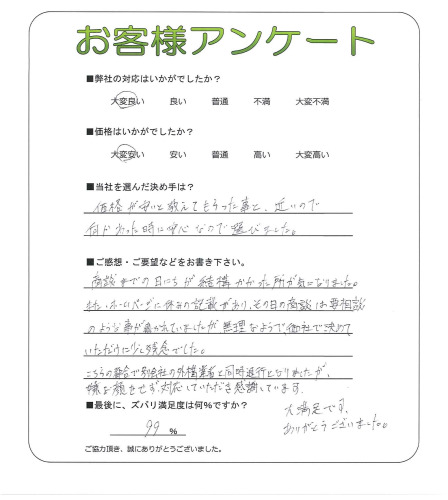 お客様アンケート
■弊社の対応はいかがでしたか？
大変良い 良い 普通 不満 大変不満
■価格はいかがでしたか？
大変安い 安い 普通 高い 大変高い
■当社を選んだ決め手は？
価格が安いと教えてもらった事と、近いので
何かあった時に安心なので選びました。
■ご感想・ご要望などをお書き下さい。
商談までの日にちが結構かかった所が気になりました。
また、ホームページに休みの記載があり、その日の商談は要相談
のような事が書かれていましたが無理なようで御社で決めて
いただけに少し残念でした。
こちらの都合で別会社の外構業者と同時進行となりましたが、
嫌な顔をせず対応していただき感謝しています。
■最後に、ズバリ満足度は何％ですか？
99 ％
大満足です。
ありがとうございました。
ご協力頂き、誠にありがとうございました。